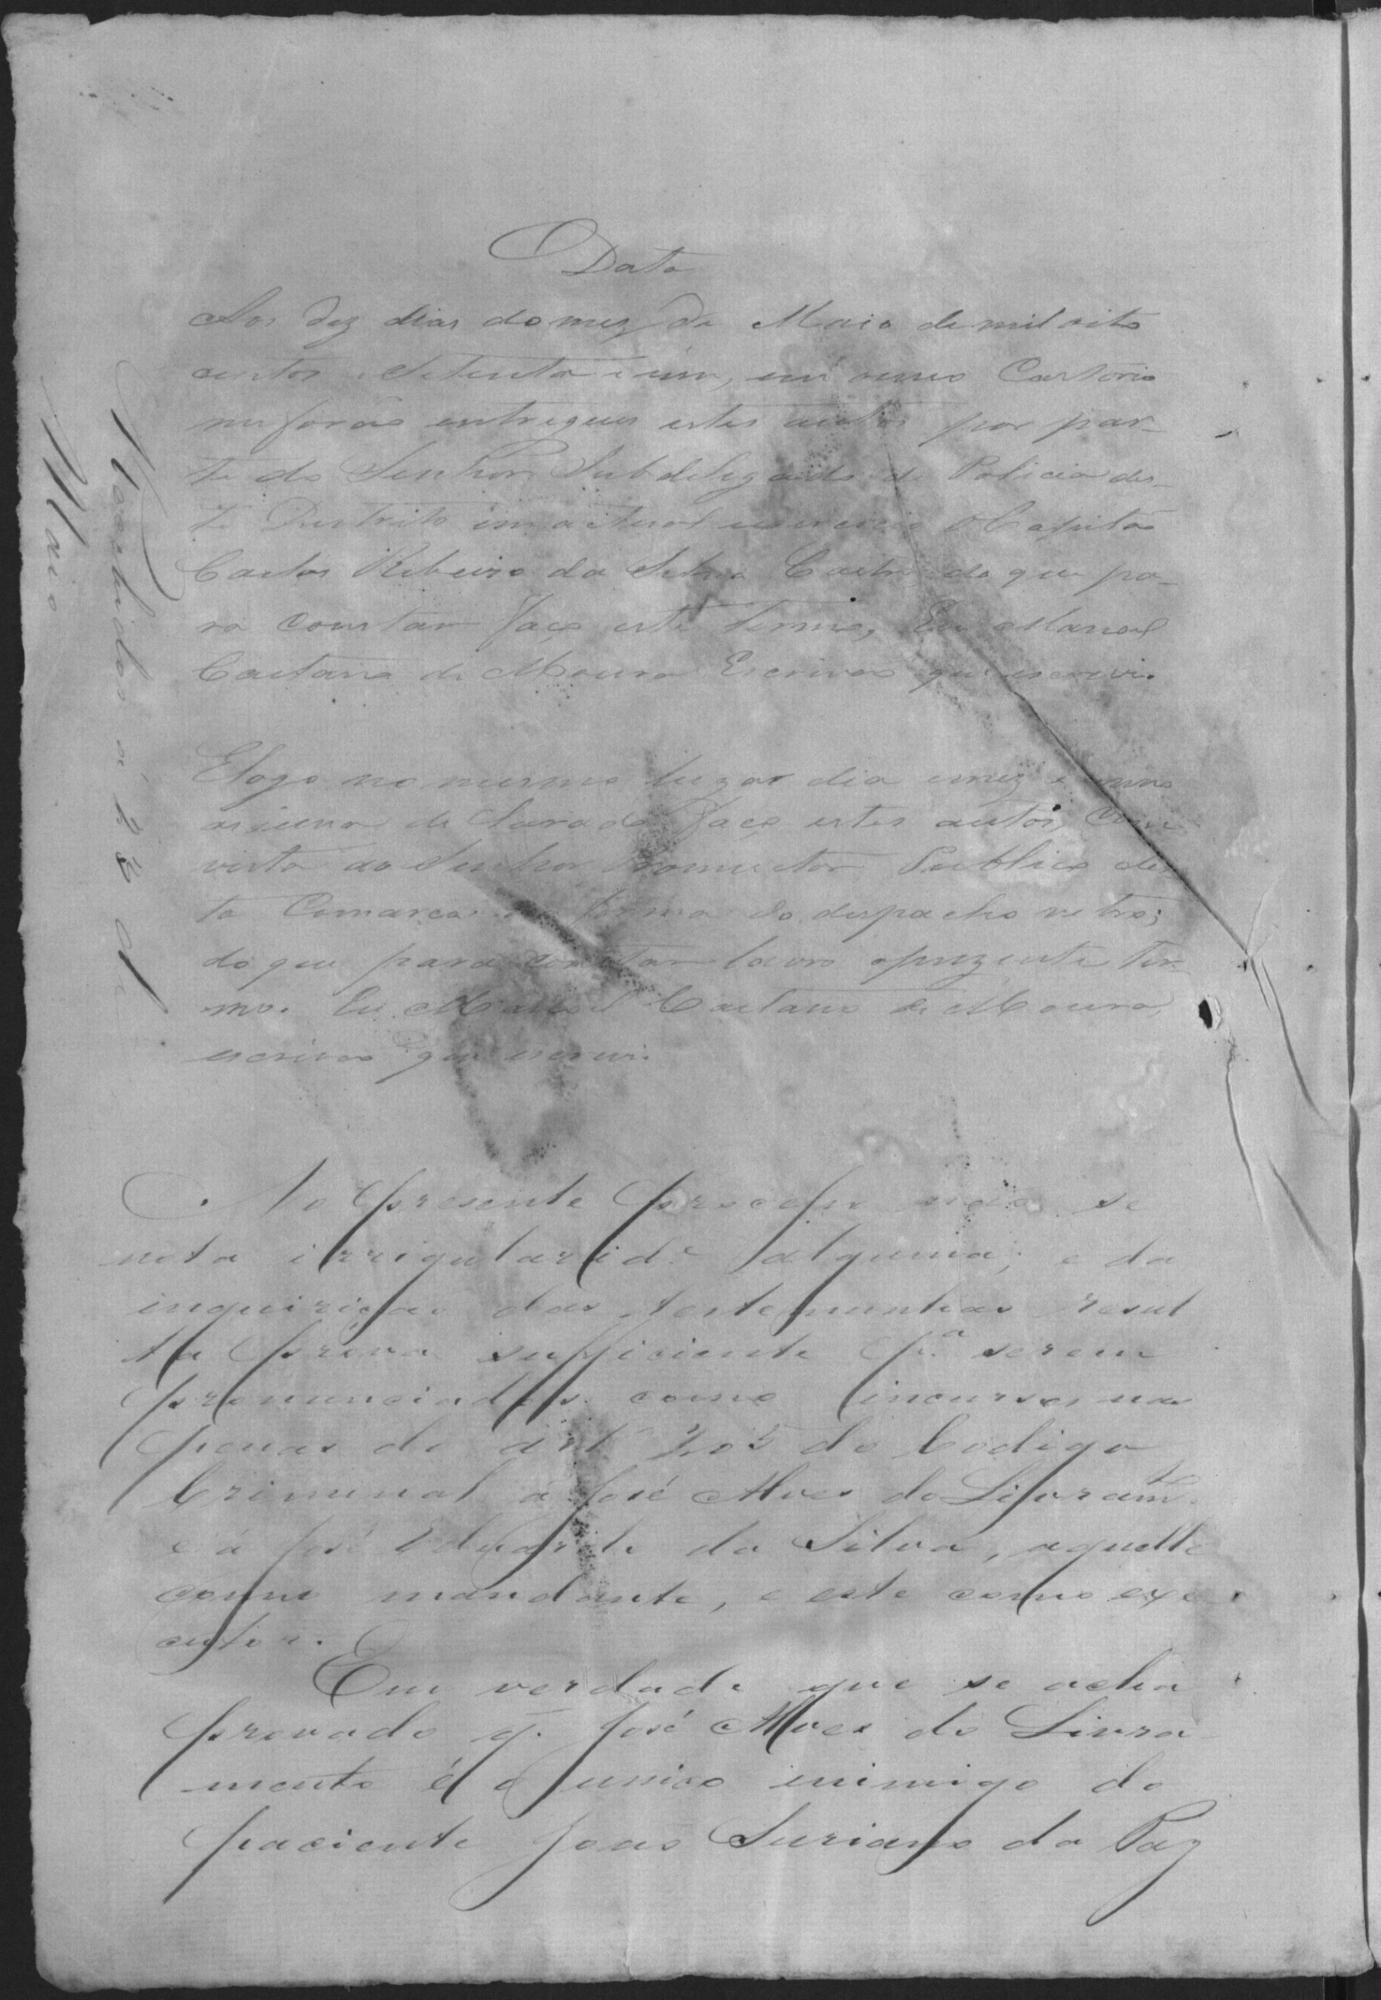 Data
Aos dez dias do mez de Maio de mil oito
centos setenta e um, em meu Cartorio
me forão entregues estes autos por par-
te do Senhor Subdelegado de Policia des-
te Destrito em actual exercicio o Capitão
Carlos Ribeiro da Silva Castro do que pa-
ra constar faço este termo, Eu Manoel
Caetano de Moura Escrivão que escrevi.
E logo no mesmo lugar dia e mez e anno
acima declarado faço estes autos com
vista ao Senhor Promotor Publico des
ta Comarca na forma do despacho retro;
do que para constar lavro o prezente ter
mo. Eu Manoel Caetano de Moura,
escrivão que escrevi.
Recebidos á 22 de
Maio
No presente processo não se
nota irregularid.e alguma; e da
inquirição das testemunhas resul
ta prova sufficiente p.a serem
pronunciados como incursos nas
penas do art.º 205 do Codigo
Criminal á José Alves do Livram.to
e á José Eduardo da Silva, aquelle
como mandante, e este como exe
cutor.
Em verdade que se acha
provado q. José Alves do Livra
mento é o unico inimigo do
paciente João Suriano da Paz